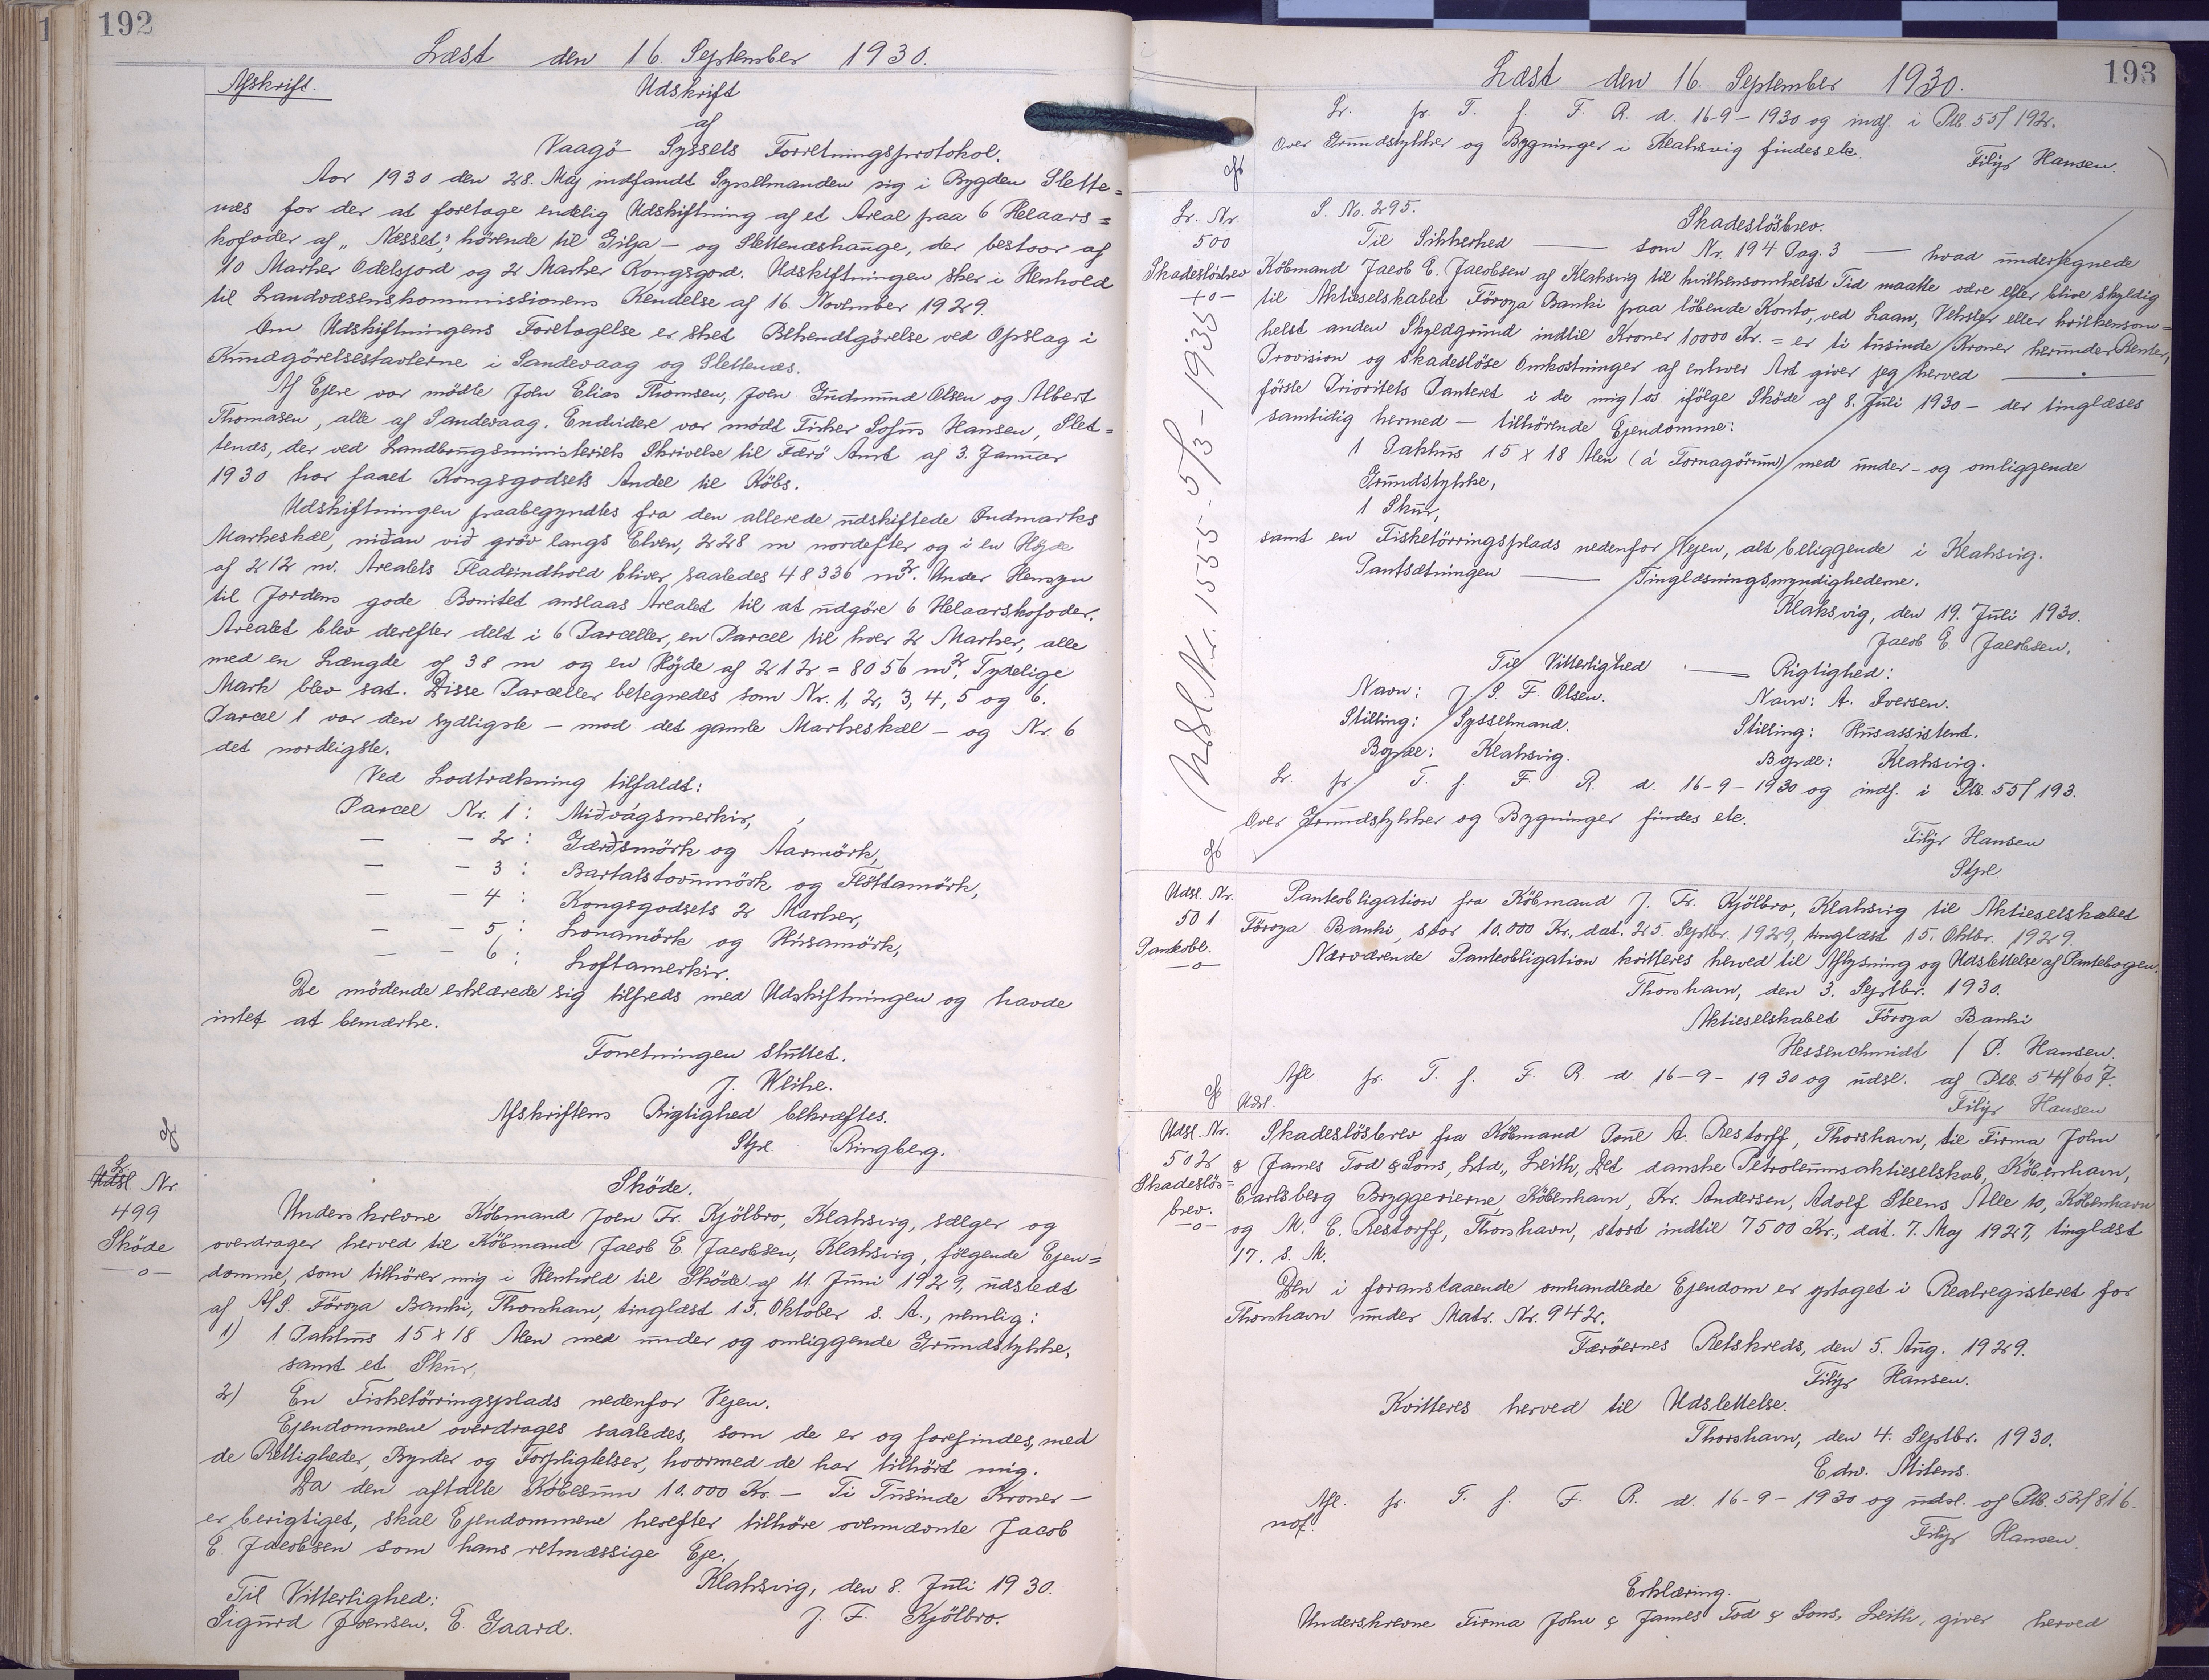 192
Læst den 16. September 1930.
Afskrift.
Udskrift
af
Vaagö Syssels Forretningsprotokol.
Aar 1930 den 28. Maj indfandt Sysselmanden sig i Bygden Slette=
næs for der at foretage endelig Udskiftning af et Areal paa 6 Helaars=
kofoder af „Næsset“, hørende til Gilja- og Slettenæshauge, der bestaar af
10 Marker Odelsjord og 2 Marker Kongsgord. Udskiftningen sker i Henhold
til Landvæsenskommissionens Kendelse af 16. November 1929.
Om Udskiftningens Foretagelse er sket Bekendtgörelse ved Opslag i
Kundgörelsestavlerne i Sandevaag og Slettenæs.
Af Ejere var mödte John Elias Thomsen, Joen Gudmund Olsen og Albert
Thomasen, alle af Sandevaag. Endvidere var mödt Fisker Sofus Hansen, Slet=
tenæs, der ved Landbrugsministeriets Skrivelse til Færö Amt af 3. Januar
1930 har faaet Kongsgodsets Andel til Köbs.
Udskiftningen paabegyndtes fra den allerede udskiftede Indmarks
Markeskel, niðan við gröv langs Elven, 228 m nordefter og i en Höjde
af 212 m. Arealets Fladeindhold bliver saaledes 48336 m². Under Hensyn
til Jordens gode Bonitet anslaas Arealet til at udgöre 6 Helaarskofoder.
Arealet blev derefter delt i 6 Parceller, en Parcel til hver 2 Marker, alle
med en Længde af 38 m og en Höjde af 212 = 8056 m². Tydelige
Mark blev sat. Disse Parceller betegnedes som Nr. 1, 2, 3, 4, 5 og 6.
Parcel 1 var den sydligste – mod det gamle Markeskel – og Nr. 6
det nordligste.
Ved Lodtrækning tilfaldt:
Parcel Nr. 1: Miðvágsmerkir,
— - 2: Gærðsmörk og Áarmörk,
— - 3: Bartalstovumörk og Flöttamörk,
— - 4: Kongsgodsets 2 Marker,
— - 5: Lonamörk og Húsamörk,
— - 6: Loftamerkir.
De mödende erklærede sig tilfreds med Udskiftningen og havde
intet at bemærke.
Forretningen sluttet.
J. Klihe.
Afskriftens Rigtighed bekræftes.
Stpl. Ringberg.
Lr.
Udsl. Nr.
499
Sköde
—o—
Sköde.
Underskrevne Köbmand Joen Fr. Kjölbro, Klaksvig, sælger og
overdrager herved til Köbmand Jacob E. Jacobsen, Klaksvig, fölgende Ejen=
domme, som tilhörer mig i Henhold til Sköde af 11. Juni 1929, udstedt
af A/S. Föroya Banki, Thorshavn, tinglæst 15. Oktober s. A., nemlig:
1) 1 Pakhus 15 x 18 Alen med under og omliggende Grundstykke,
samt et Skur,
2) En Fisketörringsplads nedenfor Vejen.
Ejendommene overdrages saaledes, som de er og forefindes, med
de Rettigheder, Byrder og Forpligtelser, hvormed de har tilhört mig.
Da den aftalte Köbesum 10.000 Kr. – Ti Tusinde Kroner –
er berigtiget, skal Ejendommene herefter tilhöre ovennævnte Jacob
E. Jacobsen som hans retmæssige Eje.
Klaksvig, den 8. Juli 1930.
Til Vitterlighed:
J. F. Kjölbro.
Sigurd Joensen. E. Gaard.
193
Læst den 16. September 1930.
Lr. fr. T. f. F. R. d. 16-9-1930 og indf. i Ptb. 55/192.
Over Grundstykker og Bygninger i Klaksvig findes etc.
Filip Hansen.
Lr. Nr.
500
Skadeslösbrev
—o—
S. No. 295.
Skadeslösbrev.
Til Sikkerhed —— som Nr. 194 Pag. 3 —— hvad undertegnede
Köbmand Jacob E. Jacobsen af Klaksvig til hvilkensomhelst Tid maatte være eller blive skyldig
til Aktieselskabet Föroya Banki paa löbende Konto, ved Laan, Veksler eller hvilkensom=
helst anden Skyldgrund indtil Kroner 10000 Kr. = er ti tusinde Kroner herunder Renter,
Provision og skadeslöse Omkostninger af enhver Art giver jeg herved ——
förste Prioritets Panteret i de mig/os ifölge Sköde af 8. Juli 1930 – der tinglæses
samtidig hermed – tilhörende Ejendomme:
1 Pakhus 15 x 18 Alen (á Tornagörum) med under- og omliggende
Grundstykke,
1 Skur,
samt en Fisketörringsplads nedenfor Vejen, alt beliggende i Klaksvig.
Pantsætningen —— Tinglæsningsmyndighederne.
Klaksvig, den 19. Juli 1930.
Jacob E. Jacobsen.
Til Vitterlighed —— Rigtighed:
Navn: J. S. F. Olsen. Navn: A. Iversen.
Stilling: Sysselmand. Stilling: Husassistent.
Bopæl: Klaksvig. Bopæl: Klaksvig.
Lr. fr. T. f. F. R. d. 16-9-1930 og indf. i Ptb. 55/193.
Over Grundstykker og Bygninger findes etc.
Filip Hansen
Stpl.
Udsl. Nr. 1555 - 5/3 - 1935
Udsl. Nr.
501
Panteobl.
—o—
Panteobligation fra Köbmand J. Fr. Kjölbro, Klaksvig til Aktieselskabet
Föroya Banki, stor 10.000 Kr., dat. 25. Septbr. 1929, tinglæst 15. Oktbr. 1929.
Nærværende Panteobligation kvitteres herved til Aflysning og Udslettelse af Pantebogen.
Thorshavn, den 3. Septbr. 1930.
Aktieselskabet Föroya Banki
Hessenchmidt / P. Hansen.
Afl. fr. T. f. F. R. d. 16-9-1930 og udsl. af Ptb. 54/607.
Udsl.
Filip Hansen
Udsl. Nr.
502
Skadeslös=
brev.
—o—
Skadeslösbrev fra Köbmand Poul A. Restorff, Thorshavn, til Firma John
& James Tod & Sons, Ltd., Leith, Det danske Petroleumsaktieselskab, København,
Carlsberg Bryggerierne, København, Kr. Andersen, Adolf Steens Alle 10, København
og M. C. Restorff, Thorshavn, stort indtil 7500 Kr., dat. 7. Maj 1927, tinglæst
17. s. M.
Den i foranstaaende omhandlede Ejendom er optaget i Realregisteret for
Thorshavn under Matr. Nr. 942.
Færöernes Retskreds, den 5. Aug. 1929.
Filip Hansen.
Kvitteres herved til Udslettelse.
Thorshavn, den 4. Septbr. 1930.
Edw. Mitens.
Afl. fr. T. f. F. R. d. 16-9-1930 og udsl. af Ptb. 52/816.
Filip Hansen.
Erklæring.
Underskrevne Firma John & James Tod & Sons, Leith, giver herved